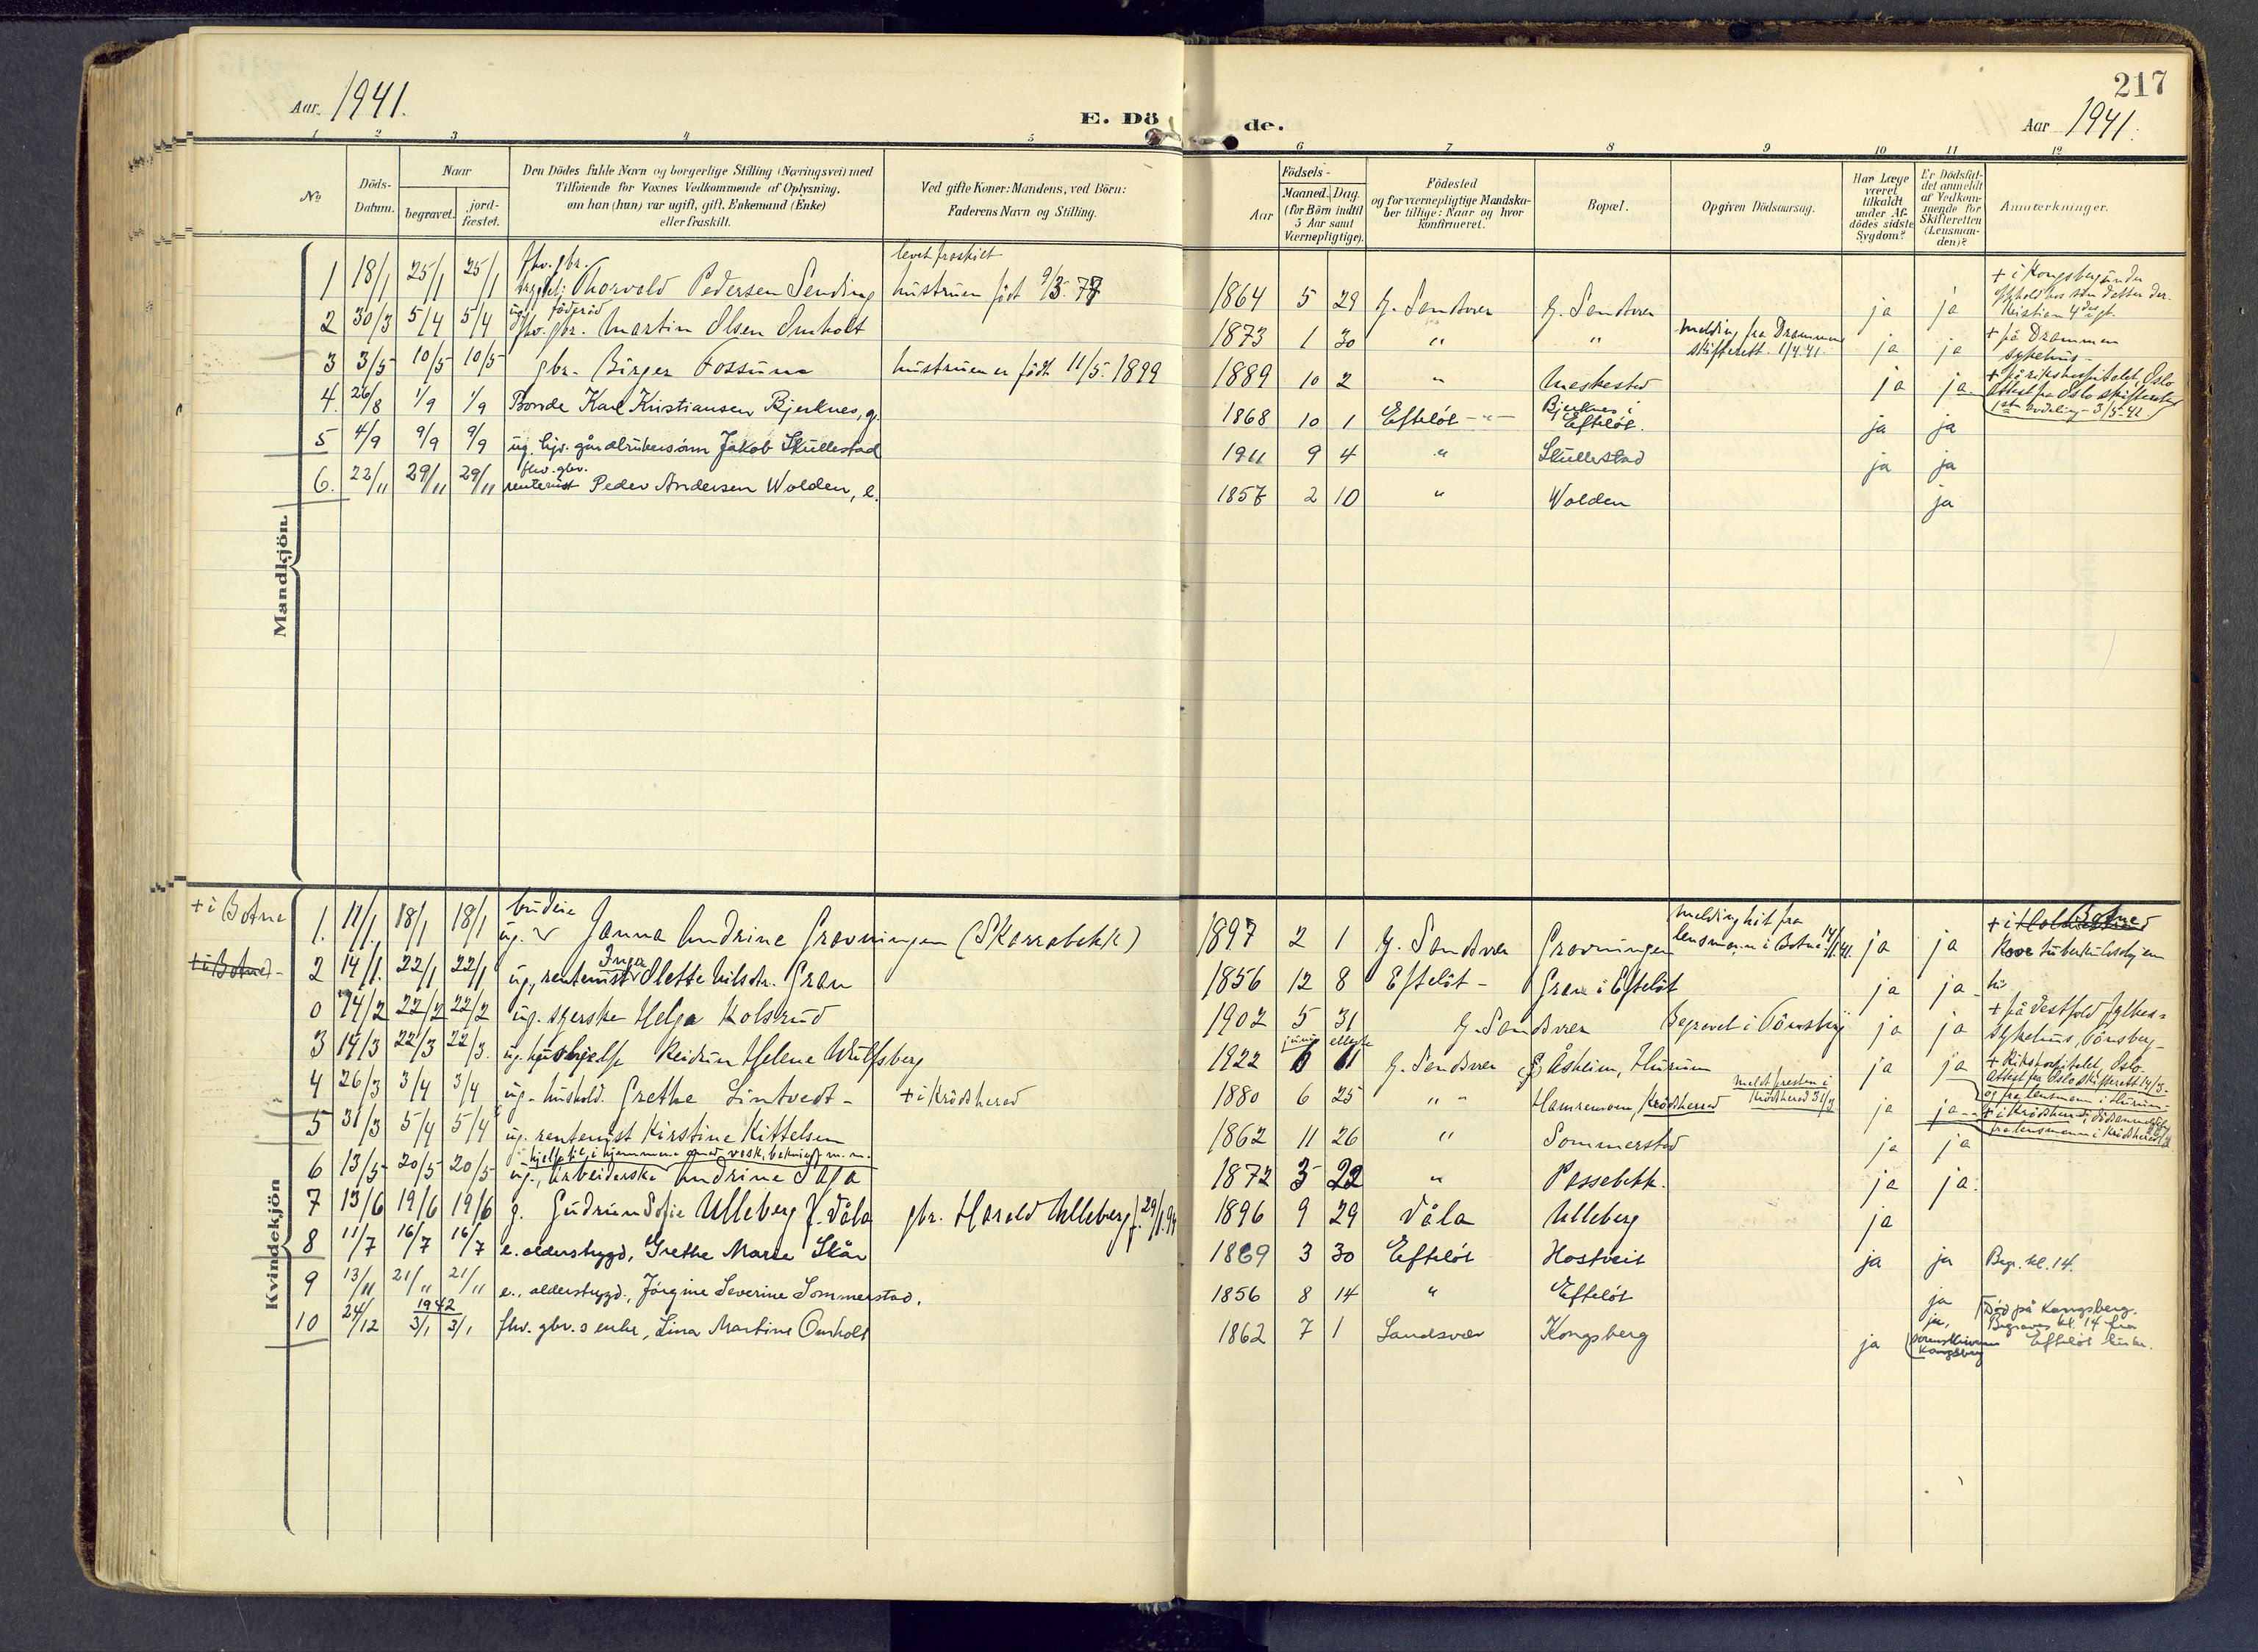 217
Aar 1941.
E. Dö
de.
Aar 1941.
1 2 3 4 5 6 7 8 9 10 11 12
No
Döds-Datum.
Naar
begravet.
jord-fæstet.
Den Dödes fulde Navn og borgerlige Stilling (Næringsvei) med
Tilföiende for Voxnes Vedkommende af Oplysning,
om han (hun) var ugift, gift, Enkemand (Enke)
eller fraskilt.
Ved gifte Koner: Mandens, ved Börn:
Faderens Navn og Stilling.
Födsels-
Aar
Maaned. Dag.
(for Börn indtil
5 Aar samt
Værnepligtige).
Födested
og for værnepligtige Mandska-
ber tillige: Naar og hvor
konfirmeret.
Bopæl.
Opgiven Dödsaarsag.
Har Læge
været
tilkaldt
under Af-
dödes sidste
Sygdom?
Er Dödsfal-
det anmeldt
af Vedkom-
mende for
Skifteretten
(Lensman-
den)?
Anmærkninger.
Mandkjön.
1 18/1 25/1 25/1 fhv. gbr. Thorvald Pedersen Sending levet fraskilt hustruen født 9/3 1864 5 29 Y. Sandsver Y. Sandsver ja ja + i Kongsberg under
2 30/3 5/4 5/4 ug. föderåd fhv. gbr. Martin Olsen Omholt 1873 1 30 " " melding fra Drammen skifterett. 1/4 41. ja ja + på Drammen sykehus-
3 3/5 10/5 10/5 gbr. Birger Fossum hustruen er født 11/5 1899 1889 10 2 " Meskestad ja ja + på rikshospitalet, Oslo Attest fra Oslo skifterett 1ste avdeling - 3/5-41.
4. 26/8 1/9 1/9 Bonde Karl Kristiansen Bjerknes, g. 1868 10 1 Efteløt - " - Bjerknes i Efteløt. ja ja
5 4/9 9/9 9/9 ug. hjv. gårdbrukersönn Jakob Skullestad 1911 9 4 " Skullestad ja ja
6. 22/11 29/11 29/11 fhv. gbr. rentenist Peder Andersen Wolden, e. 1857 2 10 " Wolden ja
Kvindekjön
+ i Botne 1. 11/1. 18/1 18/1 ug. budeie Janna Andrine Gravningen (Skarrabekk) 1897 2 1 Y. Sandsver Gravningen melding hit fra lensmann i Botne 14/1 41. ja ja + i Botne tuberkulosehjem
+ i Botne - 2 14/1. 22/1 22/1 ug., rentenist Inger Olette Nilsdtr. Gran 1856 12 8 Efteløt - Gran i Efteløt ja ja -
0 14/2 22/2 22/2 ug. syerske Helga Kolsrud 1902 5 31 Y. Sandsver Begravet i Tönsberg ja ja + på Vestfold fylkes- sykehus, Tönsberg -
3 14/3 22/3 22/3. ug. hushjelp Reidun Helene Wulfsberg 1922 juni 6 ellevte 11 Y. Sandsver Åsheim, Hurum ja ja + Rikshospitalet, Oslo. attest fra Oslo skifterett 14/3- og fra lensmann i Hurum.
4 26/3 3/4 3/4 ug. hushold. Grethe Lintvedt - + i Krödsherad 1880 6 25 " " Hamremoen, Krödsherad meldt presten i Krödsherad 31/3 ja ja - + i Krödsherad, fra lensmann i Krödsherad
5 31/3 5/4 5/4 ug. rentenist Kirstine Kittelsen 1862 11 26 " Sommerstad ja ja
6 13/5 20/5 20/5 hjelp til i hjemmene med vask, m. m. ug., Arbeiderske Andrine Saga 1872 3 22 " Passebekk. ja ja.
7 13/6 19/6 19/6 g. Gudrun Sofie Ulleberg f. Våla gbr. Harald Ulleberg f. 29/1.94 1896 9 29 Våla Ulleberg ja
8 11/7 16/7 16/7 e. alderstrygd, Grethe Marie Skår 1869 3 30 Efteløt Hostveit ja ja Begr. kl. 14.
9 13/11 21/11 21/11 e., alderstrygd., Jörgine Severine Sommerstad. 1856 8 14 " Efteløt ja
10 24/12 1942 3/1 3/1 fhv. gbr.s enke, Lina Martine Omholt 1862 7 1 Sandsvær Kongsberg ja ja, (Sorenskriveren Kongsberg Död på Kongsberg. Begraves kl. 14 fra Efteløt kirke.